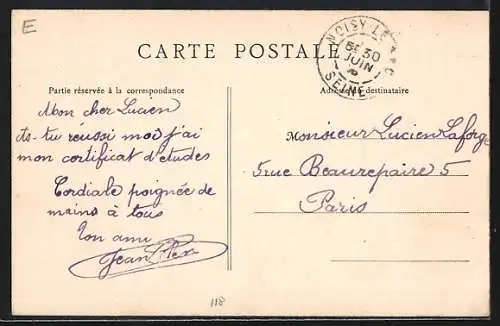 E
CARTE POSTALE
NOISY-LE-SEC
6E 30
JUIN
SEINE
Partie réservée à la correspondance
Adresse du destinataire
Mon cher Lucien
As-tu réussi moi j'ai
mon certificat d'études
Cordiale poignée de
mains à tous
Ton ami
Jean
Monsieur Lucien Laforge
5 rue Beaurepaire 5
Paris
118